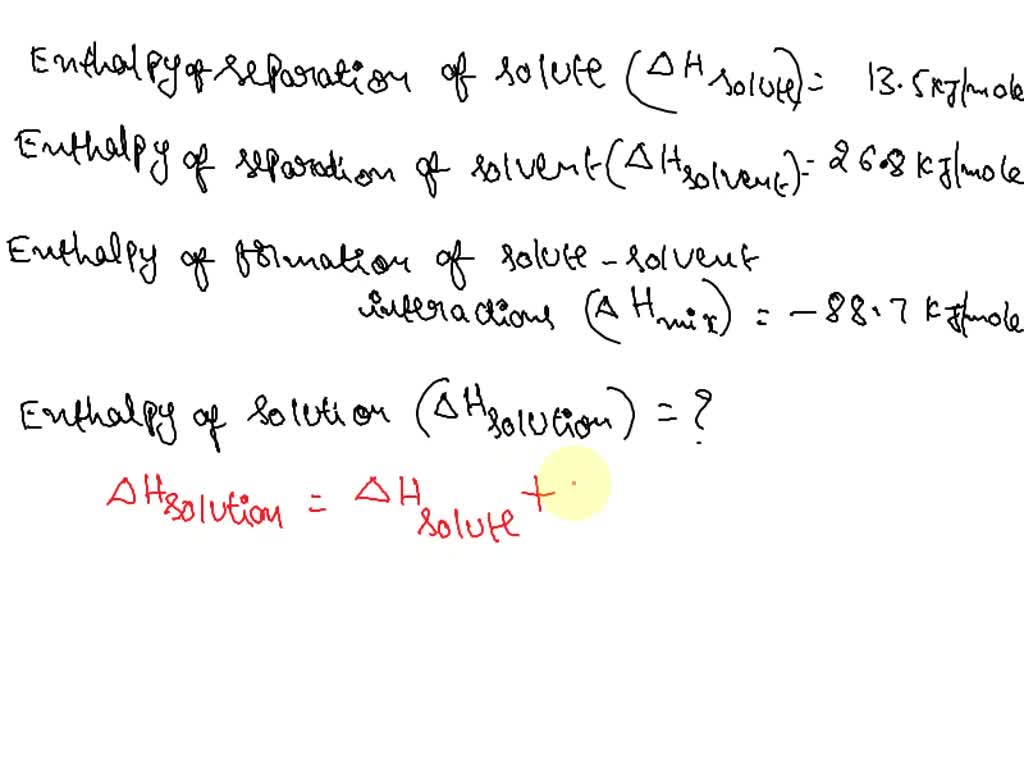 Enthalpy of separation of solute (ΔHsolute) = 13.5 kJ/mole
Enthalpy of separation of solvent (ΔHsolvent) = 26.8 kJ/mole
Enthalpy of formation of solute - solvent
interactions (ΔHmix) = -88.7 kJ/mole
Enthalpy of solution (ΔHsolution) = ?
ΔHsolution = ΔHsolute +